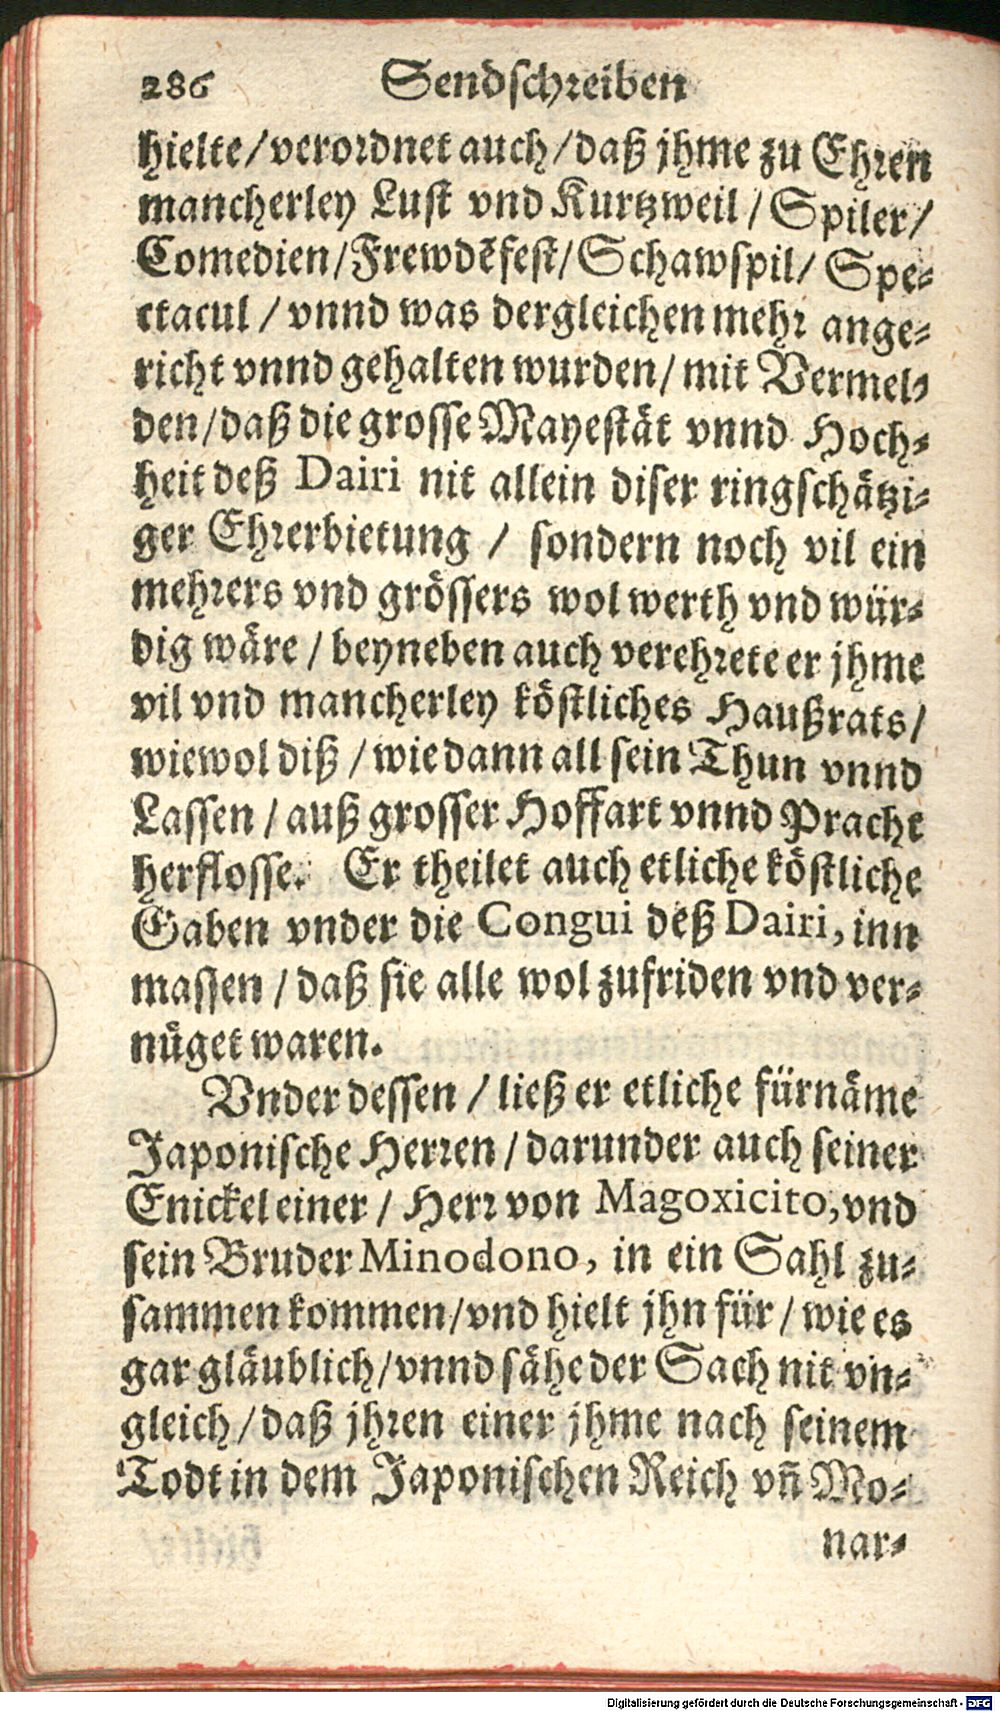 286 Sendschreiben
hielte/verordnet auch/daß jhme zu Ehren
mancherley Lust vnd Kurtzweil/Spiler/
Comedien/Frewdẽfest/Schawspil/Spe-
ctacul/vnnd was dergleichen mehr ange-
richt vnnd gehalten wurden/mit Vermel-
den/daß die grosse Mayestät vnnd Hoch-
heit deß Dairi nit allein diser ringschätzi-
ger Ehrerbietung/sondern noch vil ein
mehrers vnd grössers wol werth vnd wür-
dig wäre/beyneben auch verehrete er jhme
vil vnd mancherley köstliches Haußrats/
wiewol diß/wie dann all sein Thun vnnd
Lassen/auß grosser Hoffart vnnd Pracht
herflosse. Er theilet auch etliche köstliche
Gaben vnder die Congui deß Dairi, inn
massen/daß sie alle wol zufriden vnd ver-
nüget waren.
Vnder dessen/ließ er etliche fürnäme
Japonische Herren/darunder auch seiner
Enickel einer/Herr von Magoxicito, vnd
sein Bruder Minodono, in ein Sahl zu-
sammen kommen/vnd hielt jhn für/wie es
gar gläublich/vnnd sähe der Sach nit vn-
gleich/daß jhren einer jhme nach seinem
Todt in dem Japonischen Reich vñ Mo-
nar-
Digitalisierung gefördert durch die Deutsche Forschungsgemeinschaft - DFG